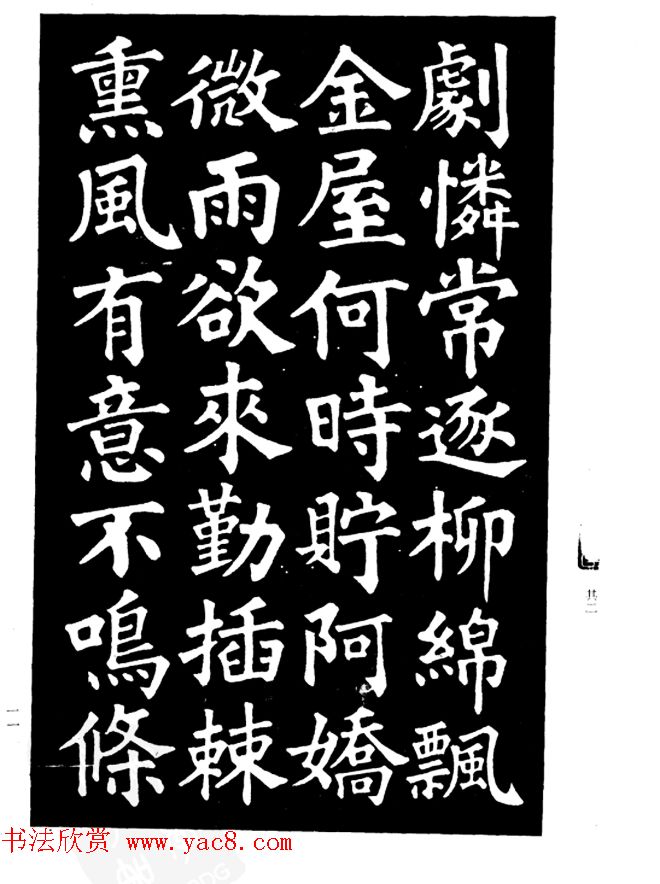 劇憐常逐柳綿飄
金屋何時貯阿嬌
微雨欲來勤插棘
熏風有意不鳴條
其二
一一
书法欣赏 www.yac8.com